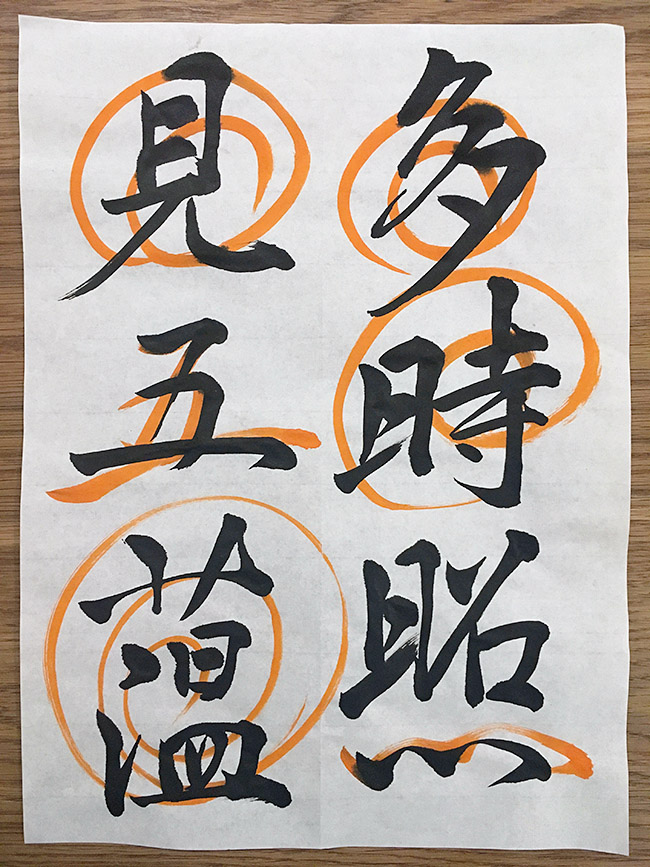 多時照
見五蕰